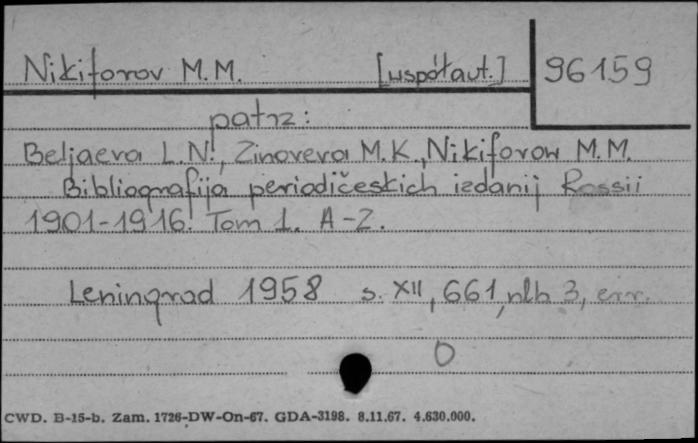 Nikiforov M.M. [współaut.] 96159
patrz:
Beljaeva L.N., Zinoveva M.K., Nikiforow M.M.
Bibliografija periodičeskich izdanij Rossii
1901-1916. Tom 1. A-Z.
Leningrad 1958 s. XII, 661, nlb 3, err.
0
CWD. B-15-b. Zam. 1726-DW-On-67. GDA-3198. 8.11.67. 4.630.000.